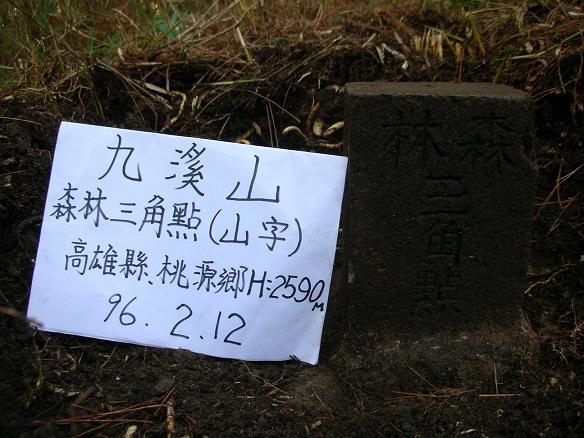 九溪山
森林三角點(山字)
高雄縣、桃源鄉H:2590M
96.2.12
森林
三角點